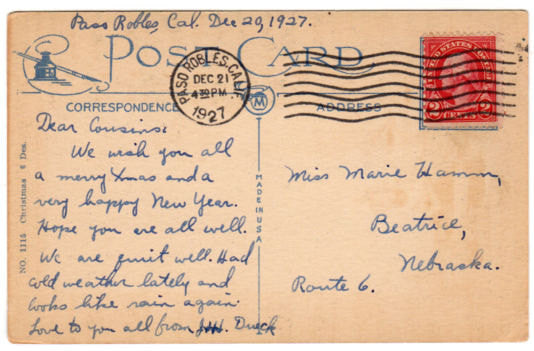 Paso Robles, Cal. Dec 20, 1927.
POST CARD
PASO ROBLES, CALIF.
DEC 21
4 30 PM
1927
CORRESPONDENCE
ADDRESS
M
UNITED STATES
2 CENTS 2
Dear Cousins:
We wish you all
a merry Xmas and a
very happy New Year.
Hope you are all well.
We are quit well. Had
cold weather lately and
looks like rain again.
Love to you all from Dueck
MADE IN U.S.A
NO. 1115 Christmas 6 Des.
Miss Marie Hamm,
Beatrice,
Nebraska.
Route 6.